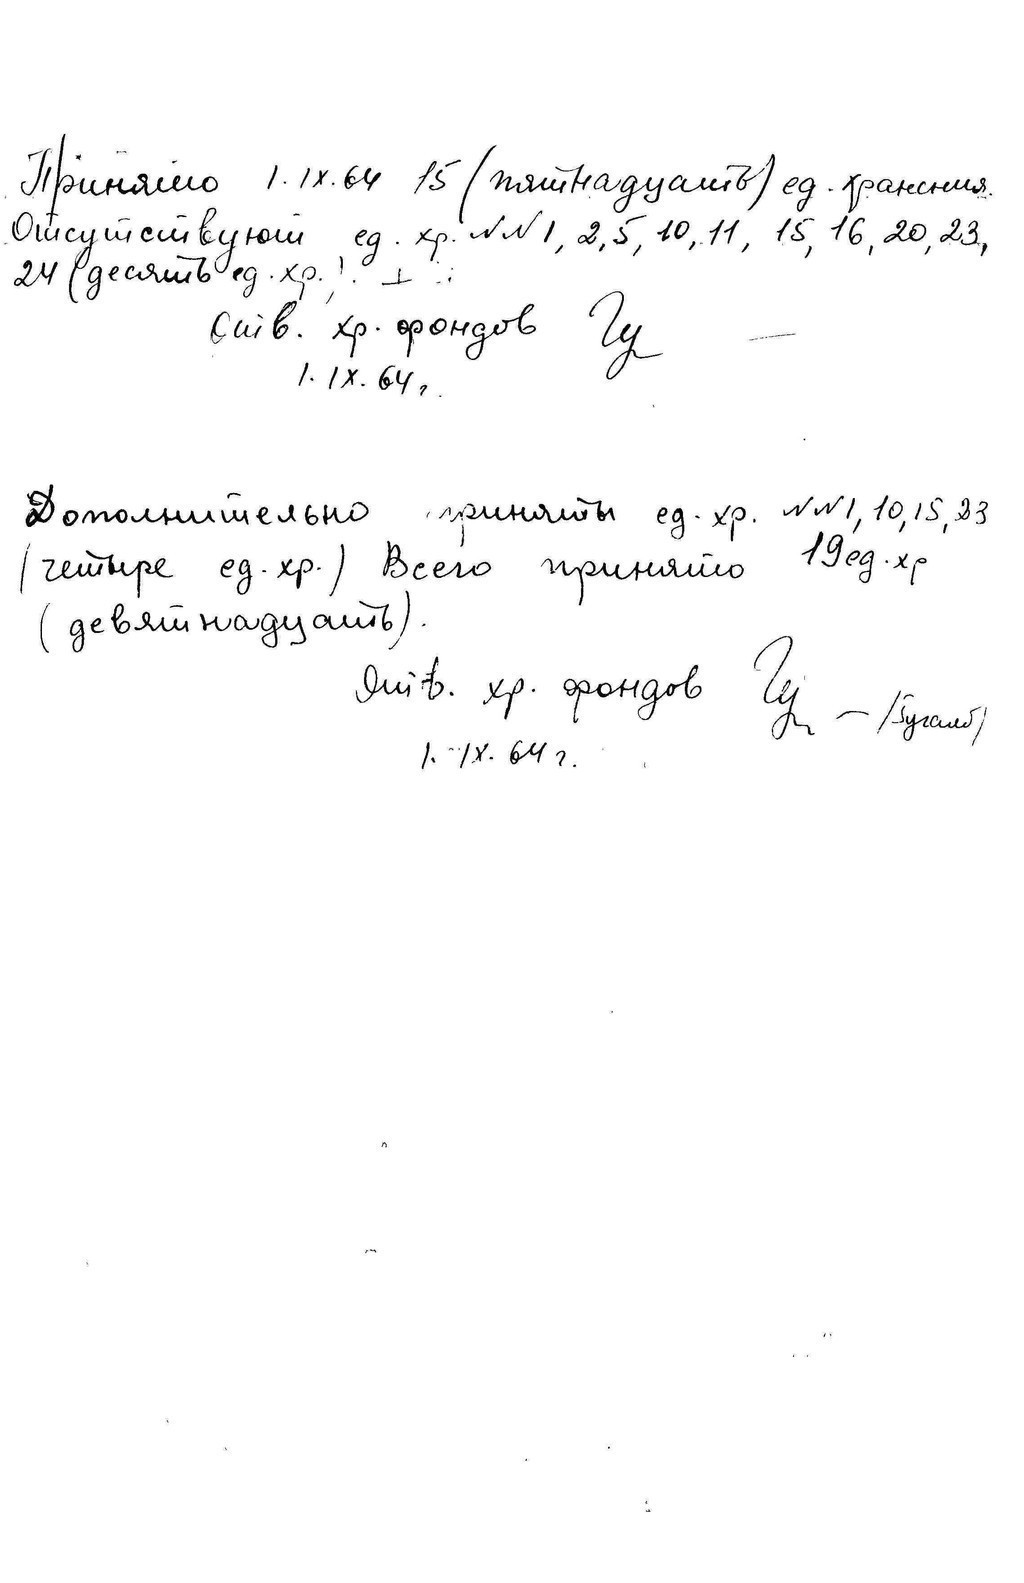 Принято 1.IX.64 15 (пятнадцать) ед. хранения.
Отсутствуют ед. хр. NN 1, 2, 5, 10, 11, 15, 16, 20, 23,
24 (десять ед. хр.)
Отв. хр. фондов
1. IX. 64 г.
Дополнительно приняты ед. хр. NN 1, 10, 15, 23
(четыре ед. хр.) Всего принято 19 ед. хр
(девятнадцать).
Отв. хр. фондов
1. IX. 64 г.